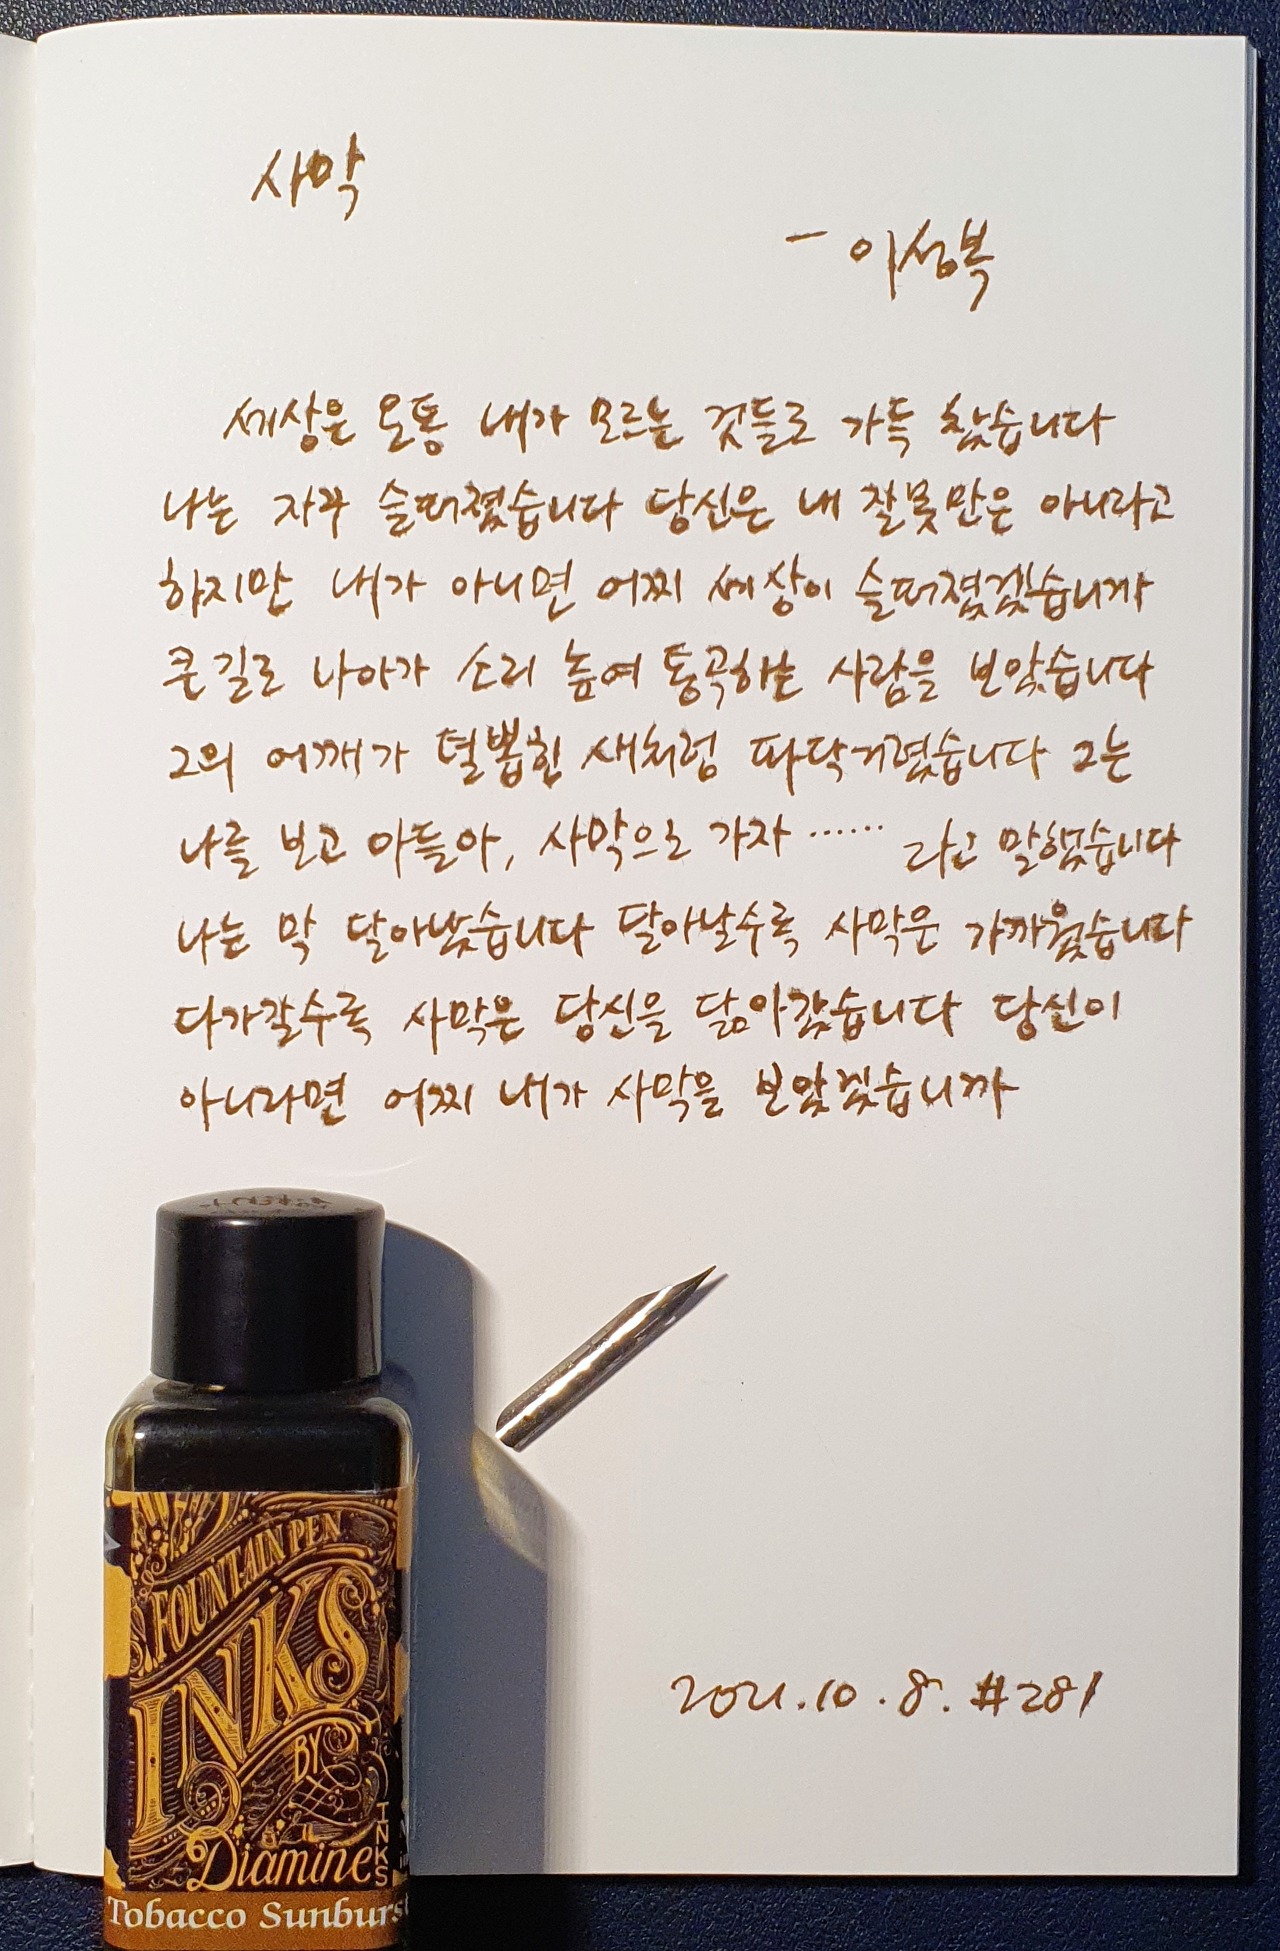 사막
- 이성복
세상은 온통 내가 모르는 것들로 가득 찼습니다
나는 자꾸 슬퍼졌습니다 당신은 내 잘못만은 아니라고
하지만 내가 아니면 어찌 세상이 슬퍼졌겠습니까
큰길로 나아가 소리 높여 통곡하는 사람을 보았습니다
그의 어깨가 털뽑힌 새처럼 파닥거렸습니다 그는
나를 보고 아들아, 사막으로 가자 …… 라고 말했습니다
나는 막 달아났습니다 달아날수록 사막은 가까웠습니다
다가갈수록 사막은 당신을 닮아갔습니다 당신이
아니라면 어찌 내가 사막을 보았겠습니까
FOUNTAIN PEN
INKS
BY
Diamine
INKS
Tobacco Sunburst
2021.10.8. #281